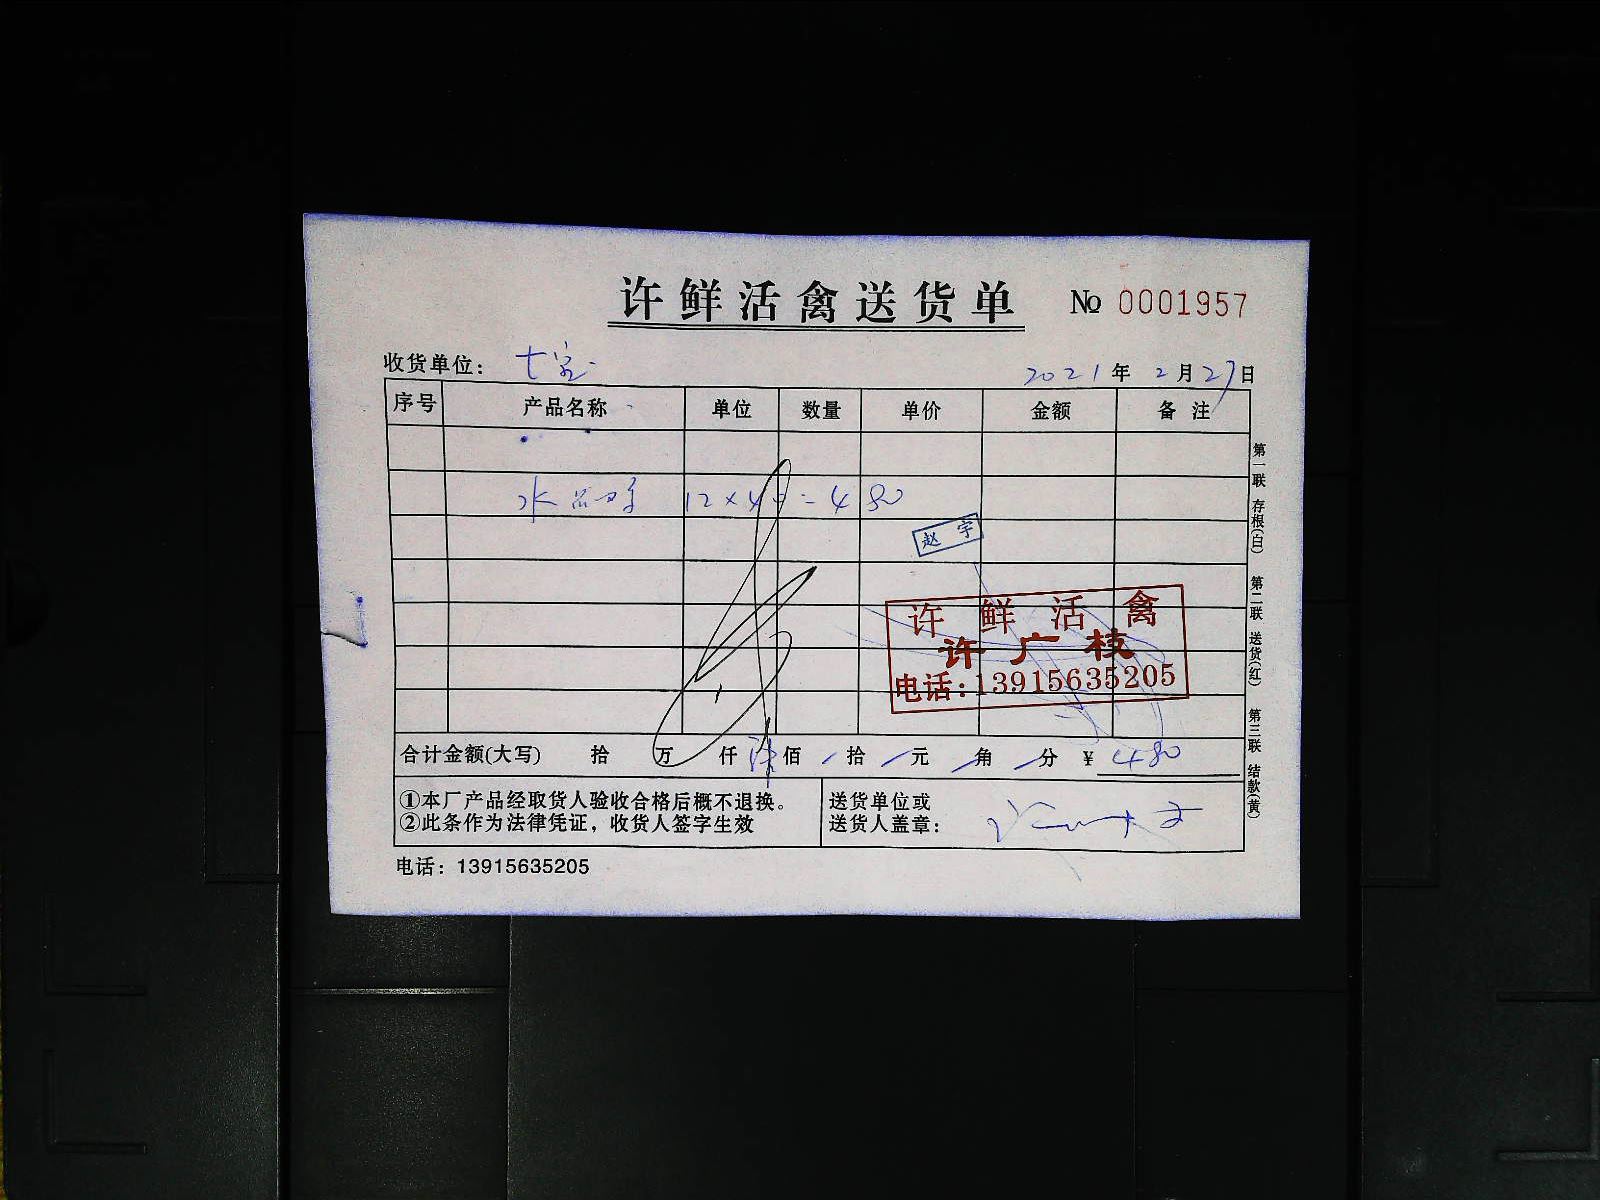 许鲜活禽送货单 № 0001957
收货单位： 七
2021年2月27日
序号 产品名称 单位 数量 单价 金额 备注
水 12×4 =480
赵宇
许鲜活禽
许广枝
电话：13915635205
合计金额(大写) 拾 万 仟 佰 拾 元 角 分 ￥480
①本厂产品经取货人验收合格后概不退换。
②此条作为法律凭证，收货人签字生效
送货单位或
送货人盖章：
电话：13915635205
第一联 存根(白) 第二联 送货(红) 第三联 结款(黄)